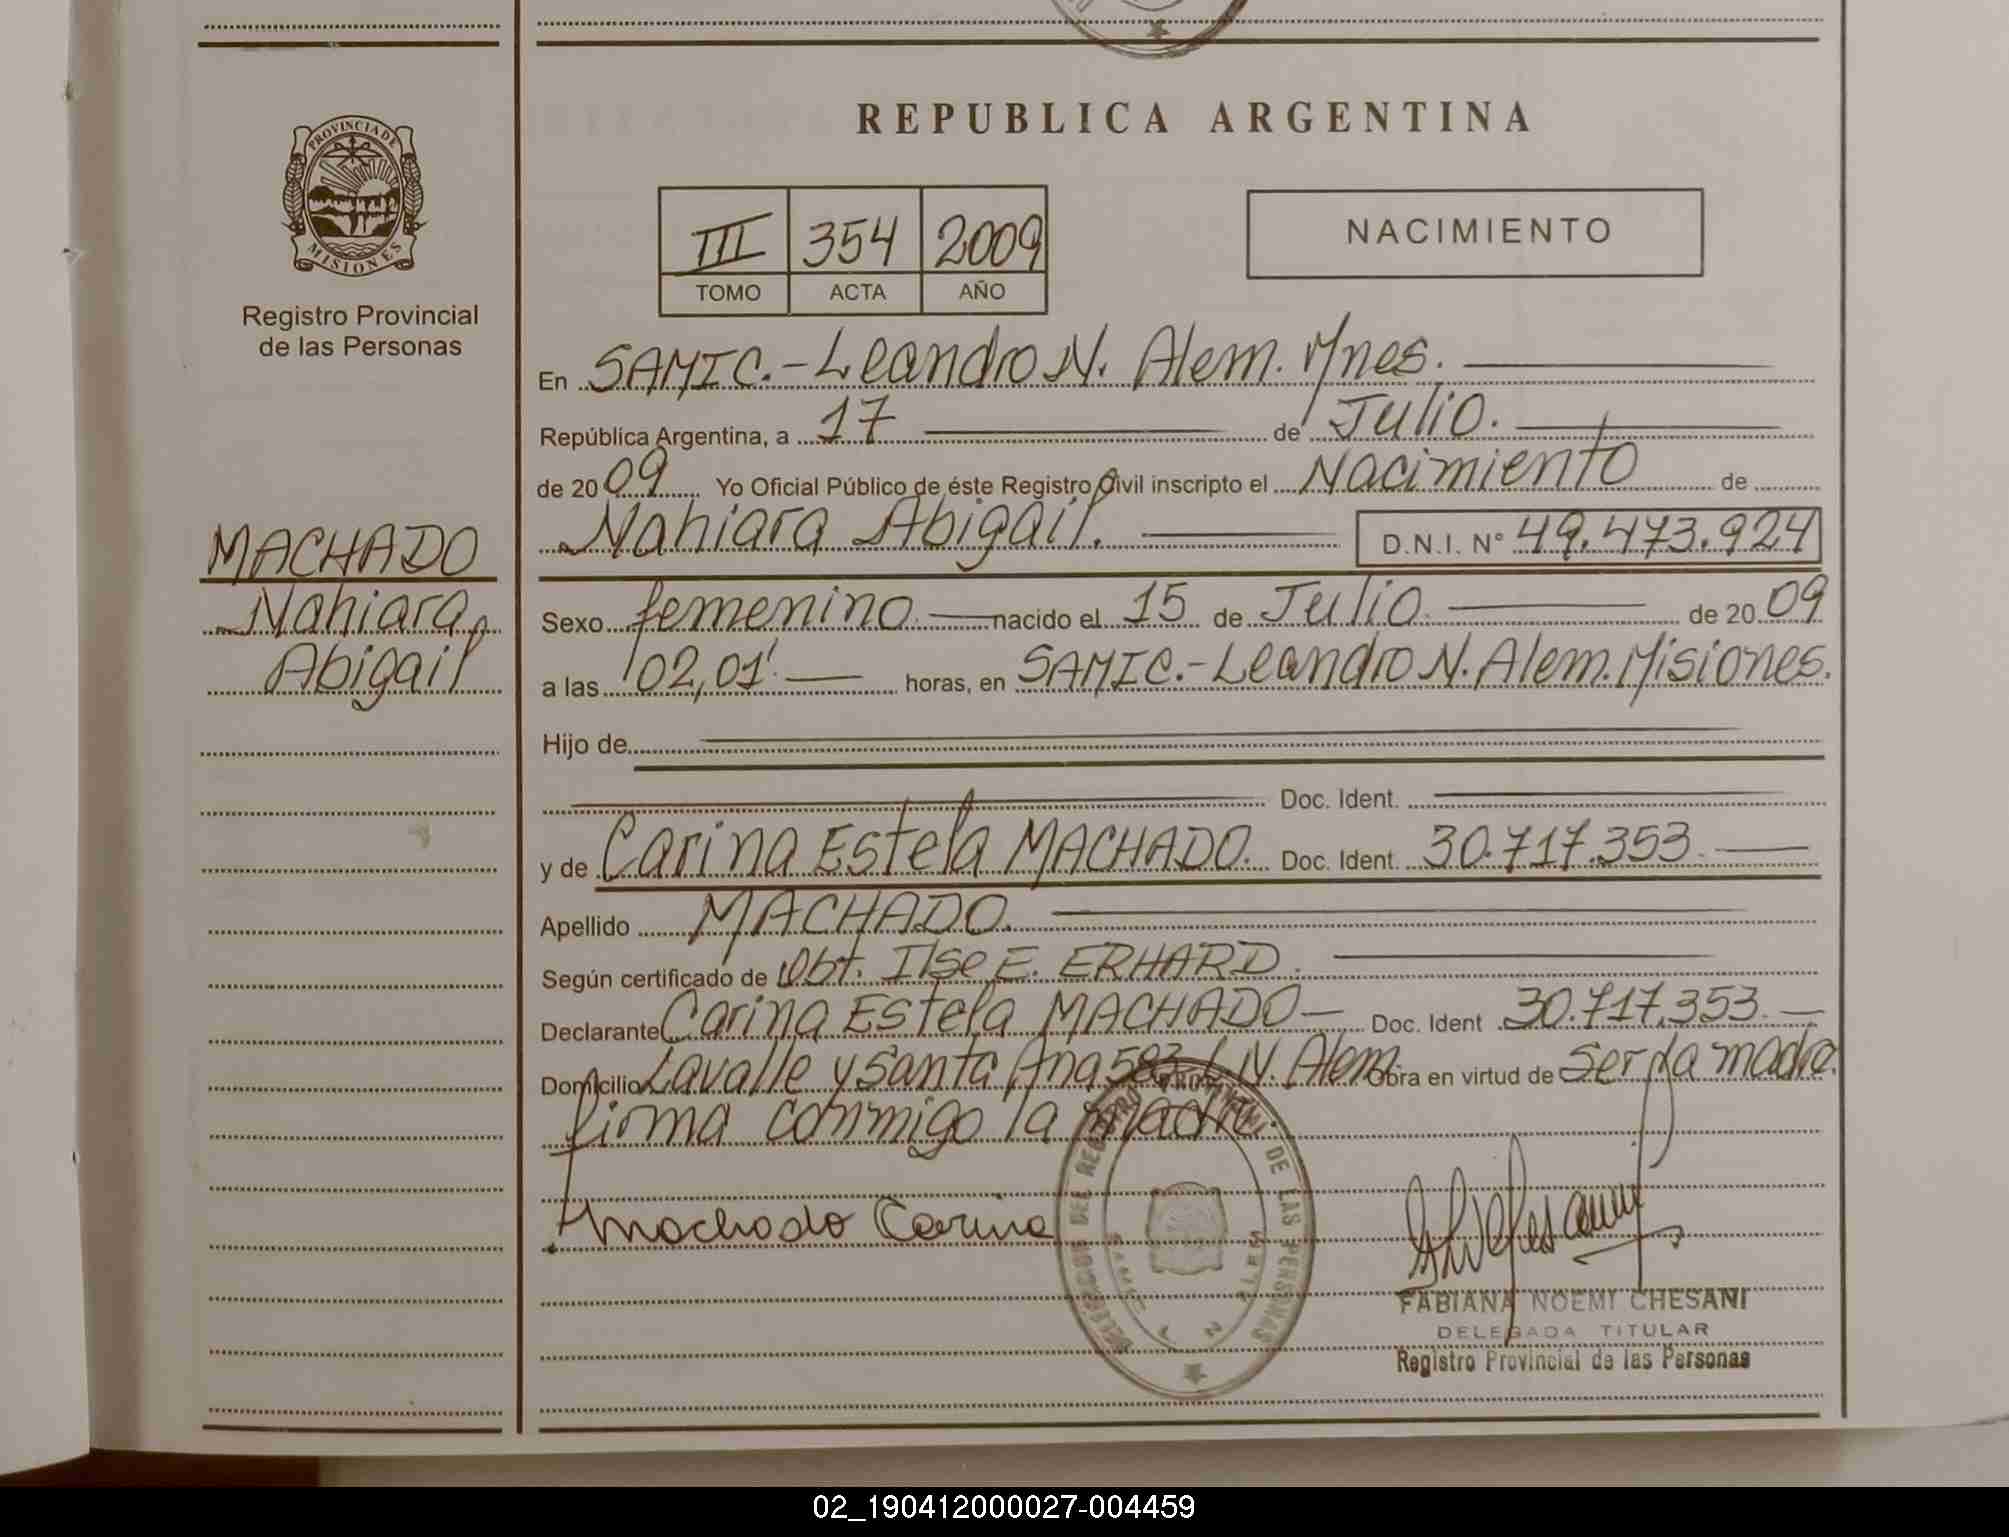 REPUBLICA ARGENTINA
PROVINCIA DE
MISIONES
Registro Provincial
de las Personas
III 354 2009
TOMO ACTA AÑO
NACIMIENTO
En SAMIC.-Leandro N. Alem. Mnes.
República Argentina, a 17 de Julio.
de 2009 Yo Oficial Público de éste Registro Civil inscripto el Nacimiento de
Nahiara Abigail. D.N.I. N° 49.473.924
MACHADO
Nahiara
Abigail
Sexo femenino. nacido el 15 de Julio. de 2009
a las 02,01' horas, en SAMIC.-Leandro N. Alem. Misiones.
Hijo de
Doc. Ident.
y de Carina Estela MACHADO. Doc. Ident. 30.717.353.
Apellido MACHADO.
Según certificado de Obt. Ilse E. ERHARD.
Declarante Carina Estela MACHADO Doc. Ident 30.717.353.
Domicilio Lavalle y Santa Ana 583 L.N. Alem. Obra en virtud de ser la madre.
firma conmigo la madre.
Machado Carina
DEL REGISTRO DE LAS PERSONAS
SAMIC L N ALEM
FABIANA NOEMI CHESANI
DELEGADA TITULAR
Registro Provincial de las Personas
02_190412000027-004459